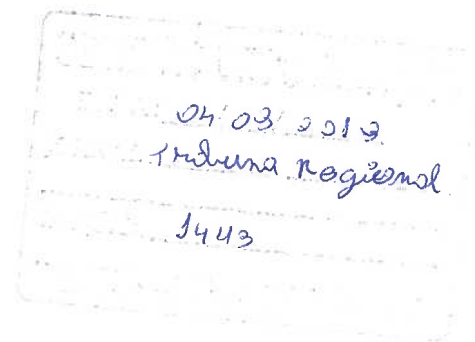 04 03 2013
Tribuna Regional
1443